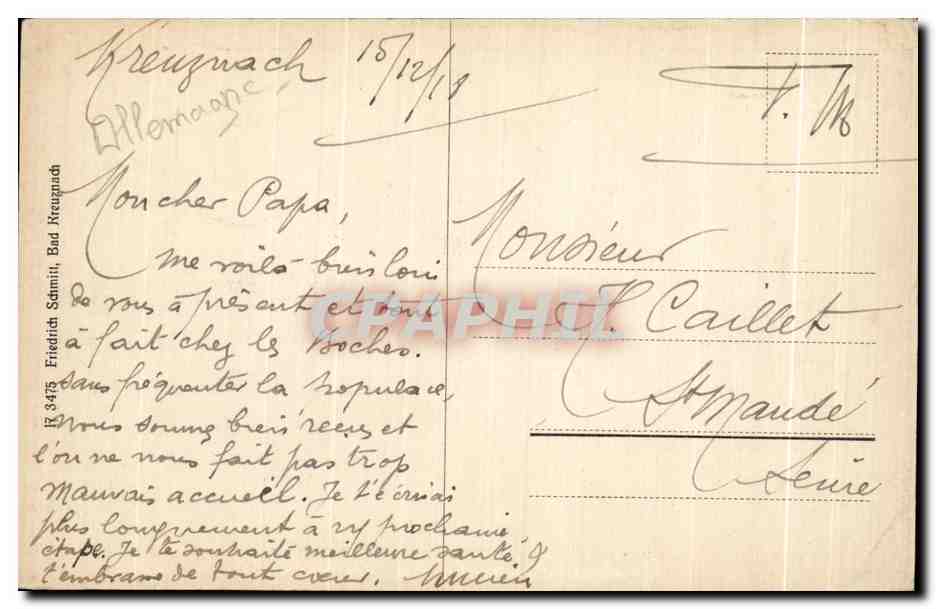 Kreuznach 15/12/18
Allemagne
F. M
Mon cher Papa,
me voilà bien loin
de vous à présent et tout
à fait chez les Boches.
sans fréquenter la populace,
nous sommes bien reçus et
l'on ne nous fait pas trop
mauvais accueil. Je t'écrirai
plus longuement à prochaine
étape. Je te souhaite meilleure santé &
t'embrasse de tout cœur. Lucien
Monsieur
H. Caillet
St Mandé
Seine
17 3475 Friedrich Schmitt, Bad Kreuznach
CPAPHIL